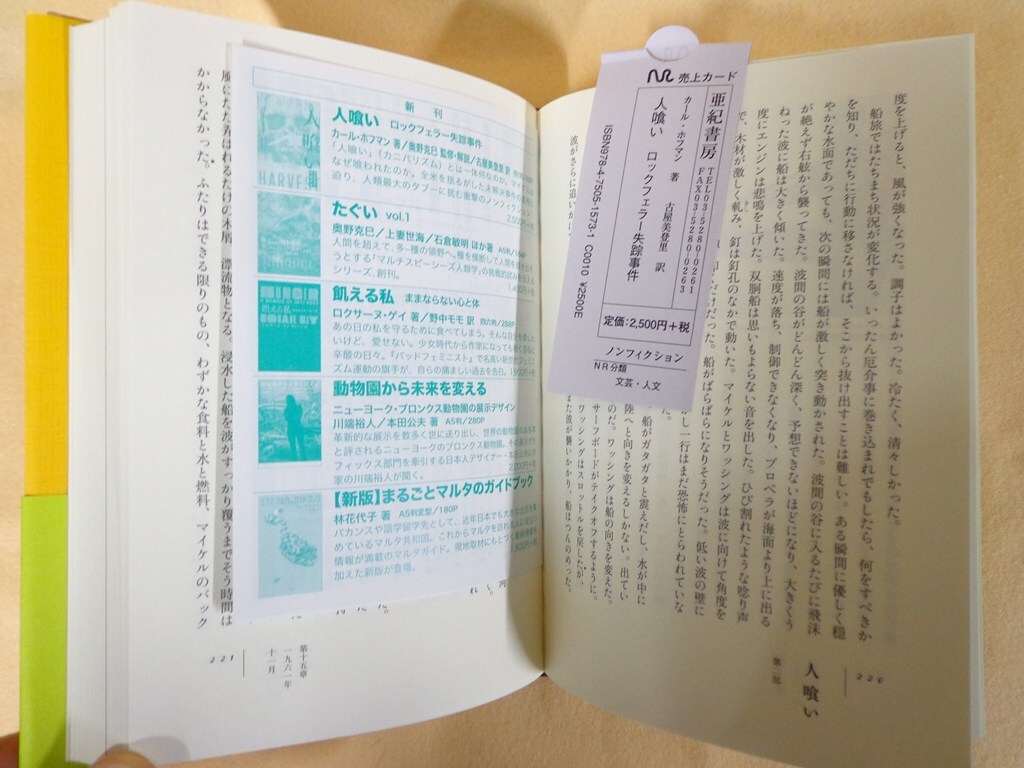 度を上げると、風が強くなった。調子はよかった。冷たく、清々しかった。
船旅ではたちまち状況が変化する。いったん厄介事に巻き込まれでもしたら、何をすべきか
を知り、ただちに行動に移さなければ、そこから抜け出すことは難しい。ある瞬間に優しく穏
やかな水面であっても、次の瞬間には船が激しく突き動かされた。波間の谷に入るたびに飛沫
が絶えず右舷から襲ってきた。波間の谷がどんどん深く、予想できないほどになり、大きくう
ねった波に船は大きく傾いた。速度が落ち、制御できなくなり、プロペラが海面より上に出る
度にエンジンは悲鳴を上げた。双胴船は思いもよらない音を出した。ひび割れたような唸り声
で、木材が激しく軋み、釘は釘孔のなかで動いた。マイケルとワッシングは波に向けて角度を
だけだった。船がばらばらになりそうだった。低い波の壁に
一行はまだ恐怖にとらわれていな
船がガタガタと震えだし、水が中に
陸へと向きを変えるしかない。出てい
のだ。ワッシングは船の向きを変えた。
サーフボードがテイクオフするように。
ワッシングはスロットルを戻したが、
また波が襲いかかり、船はつんのめった。
波がさらに追いか
220
人喰い
第二部
売上カード
亜紀書房
TEL03-5280-0261
FAX03-5280-0263
カール・ホフマン 著
古屋美登里 訳
人喰い ロックフェラー失踪事件
ISBN978-4-7505-1573-1 C0010 ¥2500E
定価:2,500円+税
ノンフィクション
NR分類
文芸・人文
新刊
人喰い ロックフェラー失踪事件
カール・ホフマン 著/奥野克巳 監修・解説/古屋美登里 訳
「人喰い」(カニバリズム)とは一体何なのか。マイ
なぜ喰われたのか。全米を揺るがした未解決事件の
迫り、人類最大のタブーに挑む衝撃のノンフィクショ
2,500円+税
たぐい vol.1
奥野克巳/上妻世海/石倉敏明 ほか著 A5判
人間を超えて、多-種の領野へ。種を横断して人間を
うとする「マルチスピーシーズ人類学」の挑戦的試み
シリーズ、創刊。
飢える私 ままならない心と体
ロクサーヌ・ゲイ 著/野中モモ 訳 四六判/288P
あの日の私を守るために食べてしまう。そんな自分を
いけど、愛せない。少女時代から作家になっても続く
辛酸の日々。『バッドフェミニスト』で名高い
ズム運動の旗手が、自らの痛ましい過去を告白。
動物園から未来を変える
ニューヨーク・ブロンクス動物園の展示デザイン
川端裕人/本田公夫 著 A5判/280P
革新的な展示を数多く世に送り出し、世界の動物園
と評されるニューヨークのブロンクス動物園。その
フィックス部門を牽引する日本人デザイナー・本田
家の川端裕人が聞く。
【新版】まるごとマルタのガイドブック
林花代子 著 A5判変型/180P
バカンスや語学留学先として、近年日本でも
めているマルタ共和国。これからマルタを訪れる
情報が満載のマルタガイド。現地取材にもとづく
加えた新版が登場。
人喰い
HARVEST
飢える私
からなかった。ふたりはできる限りのもの、わずかな食料と水と燃料、マイケルのバック
漂流物となる。浸水した船を波がすっかり覆うまでそう時間は
第十五章
一九六一年
十一月
221